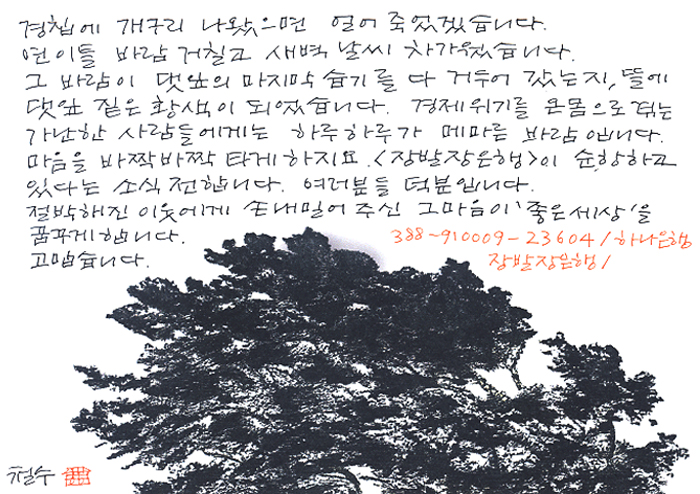 경칩에 개구리 나왔으면 얼어 죽었겠습니다.
연이틀 바람 거칠고 새벽 날씨 차가웠습니다.
그 바람이 댓잎의 마지막 습기를 다 거두어 갔는지, 뜰에
댓잎 짙은 황색이 되었습니다. 경제위기를 온몸으로 겪는
가난한 사람들에게는 하루하루가 메마른 바람입니다.
마음을 바짝바짝 타게 하지요. <장발장은행>이 순항하고
있다는 소식 전합니다. 여러분들 덕분입니다.
절박해진 이웃에게 손내밀어 주신 그마음이 '좋은세상'을
꿈꾸게합니다.
고맙습니다.
388-910009-23604/하나은행
장발장은행/
철수